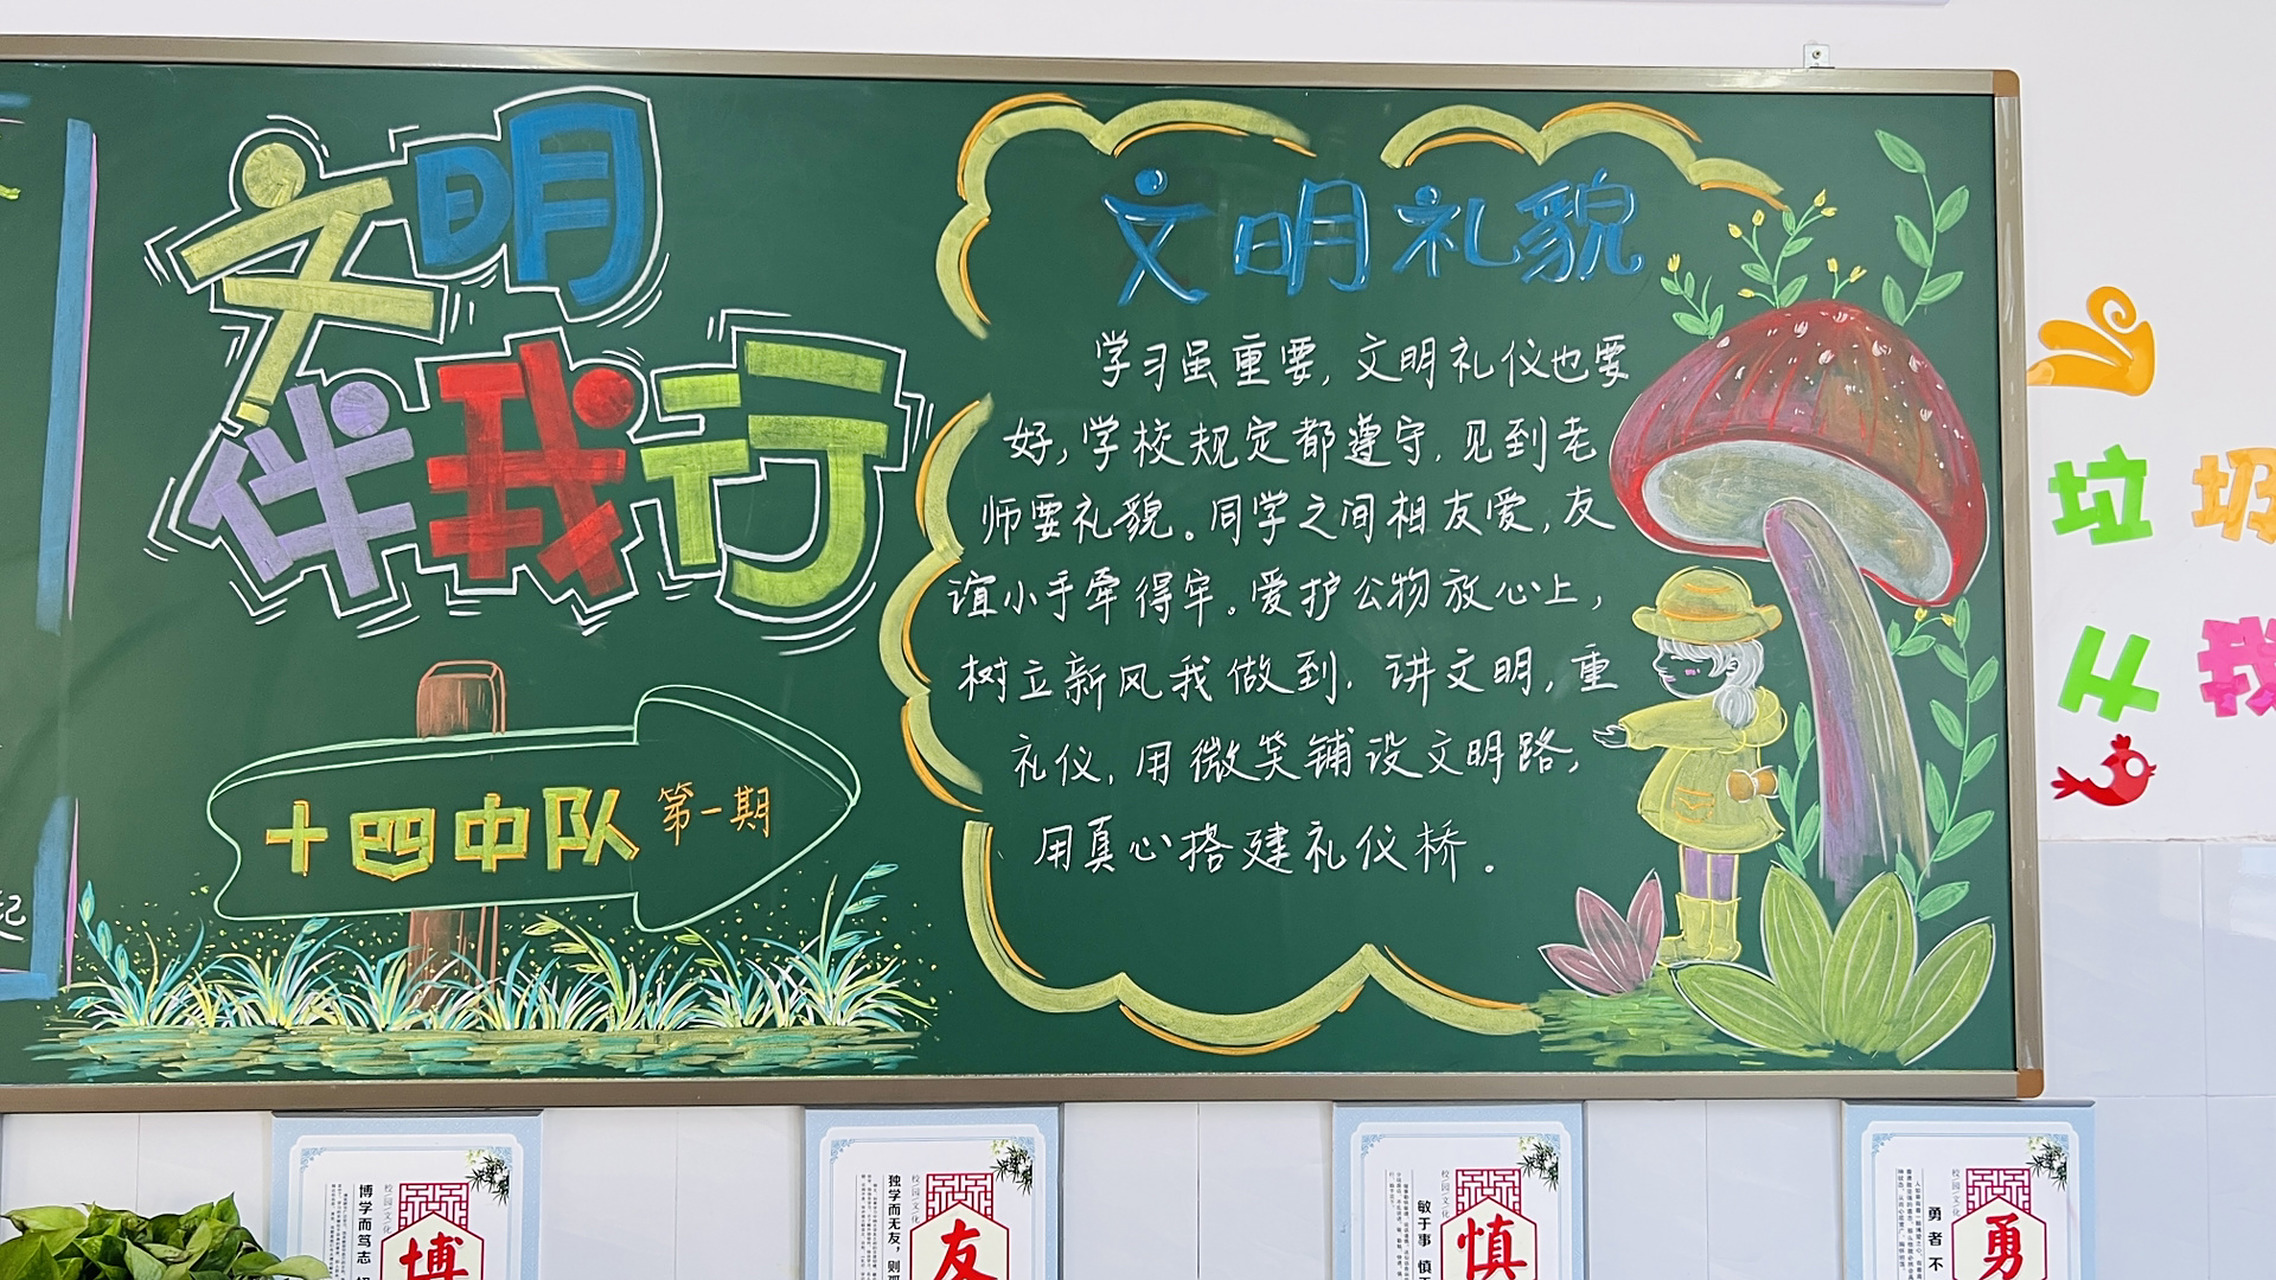 文明
伴我行
十四中队 第一期
文明礼貌
学习虽重要,文明礼仪也要
好,学校规定都遵守.见到老
师要礼貌。同学之间相友爱,友
谊小手牵得牢。爱护公物放心上,
树立新风我做到.讲文明,重
礼仪,用微笑铺设文明路,
用真心搭建礼仪桥.
垃圾
我
校园文化
博学而笃志
博
校园文化
独学而无友,则
友
校园文化
敏于事 慎
慎
校园文化
勇者不
勇